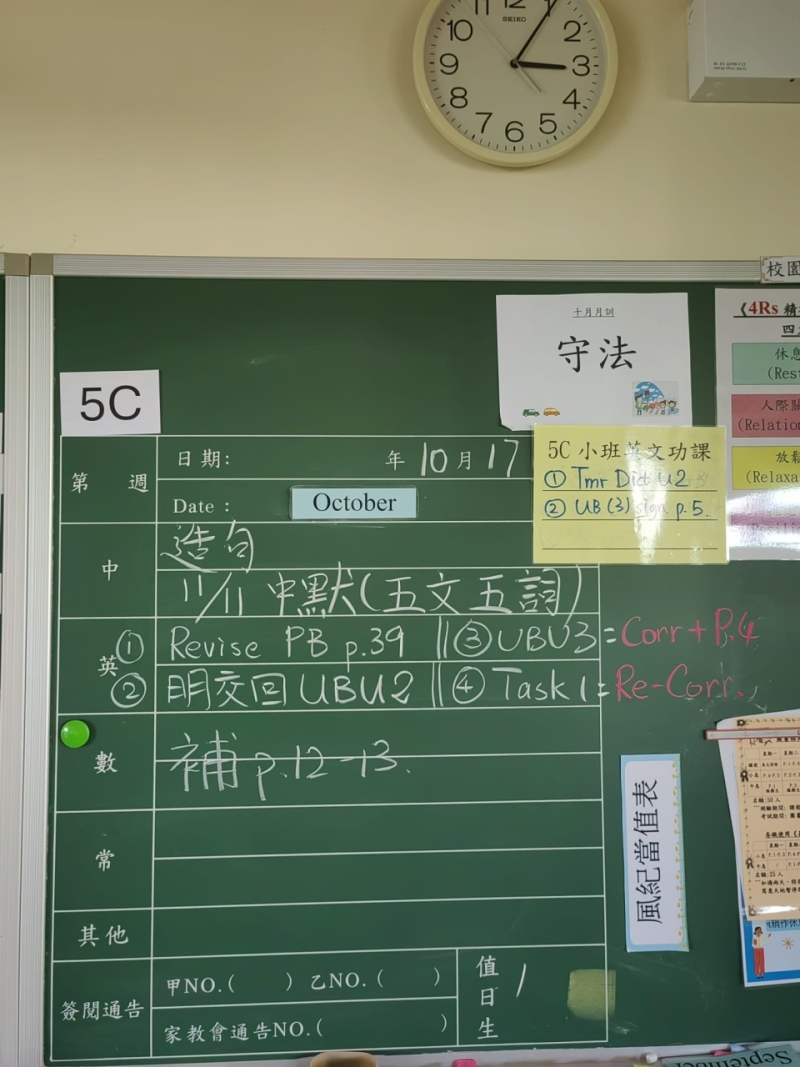 11 12 1
10 2
9 3
8 4
7 6 5
SEIKO
校園
十月月訓
守法
《4Rs 精
休息
(Res
人際關
(Relation
放鬆
(Relaxa
5C
第 週
日期: 年 10 月 17
Date :
October
5C 小班英文功課
① Tmr Dict U2
② UB (3) sign. p.5.
中
造句
11/11 中默(五文五詞)
英
① Revise PB p.39 ||③ UBU3 = Corr + P.4
② 明交回 UBU2 || ④ Task 1 = Re-Corr.
數
補 p.12-13.
常
其他
簽閱通告
甲NO.( ) 乙NO.( )
家教會通告NO.( )
值日生 1
風紀當值表
September